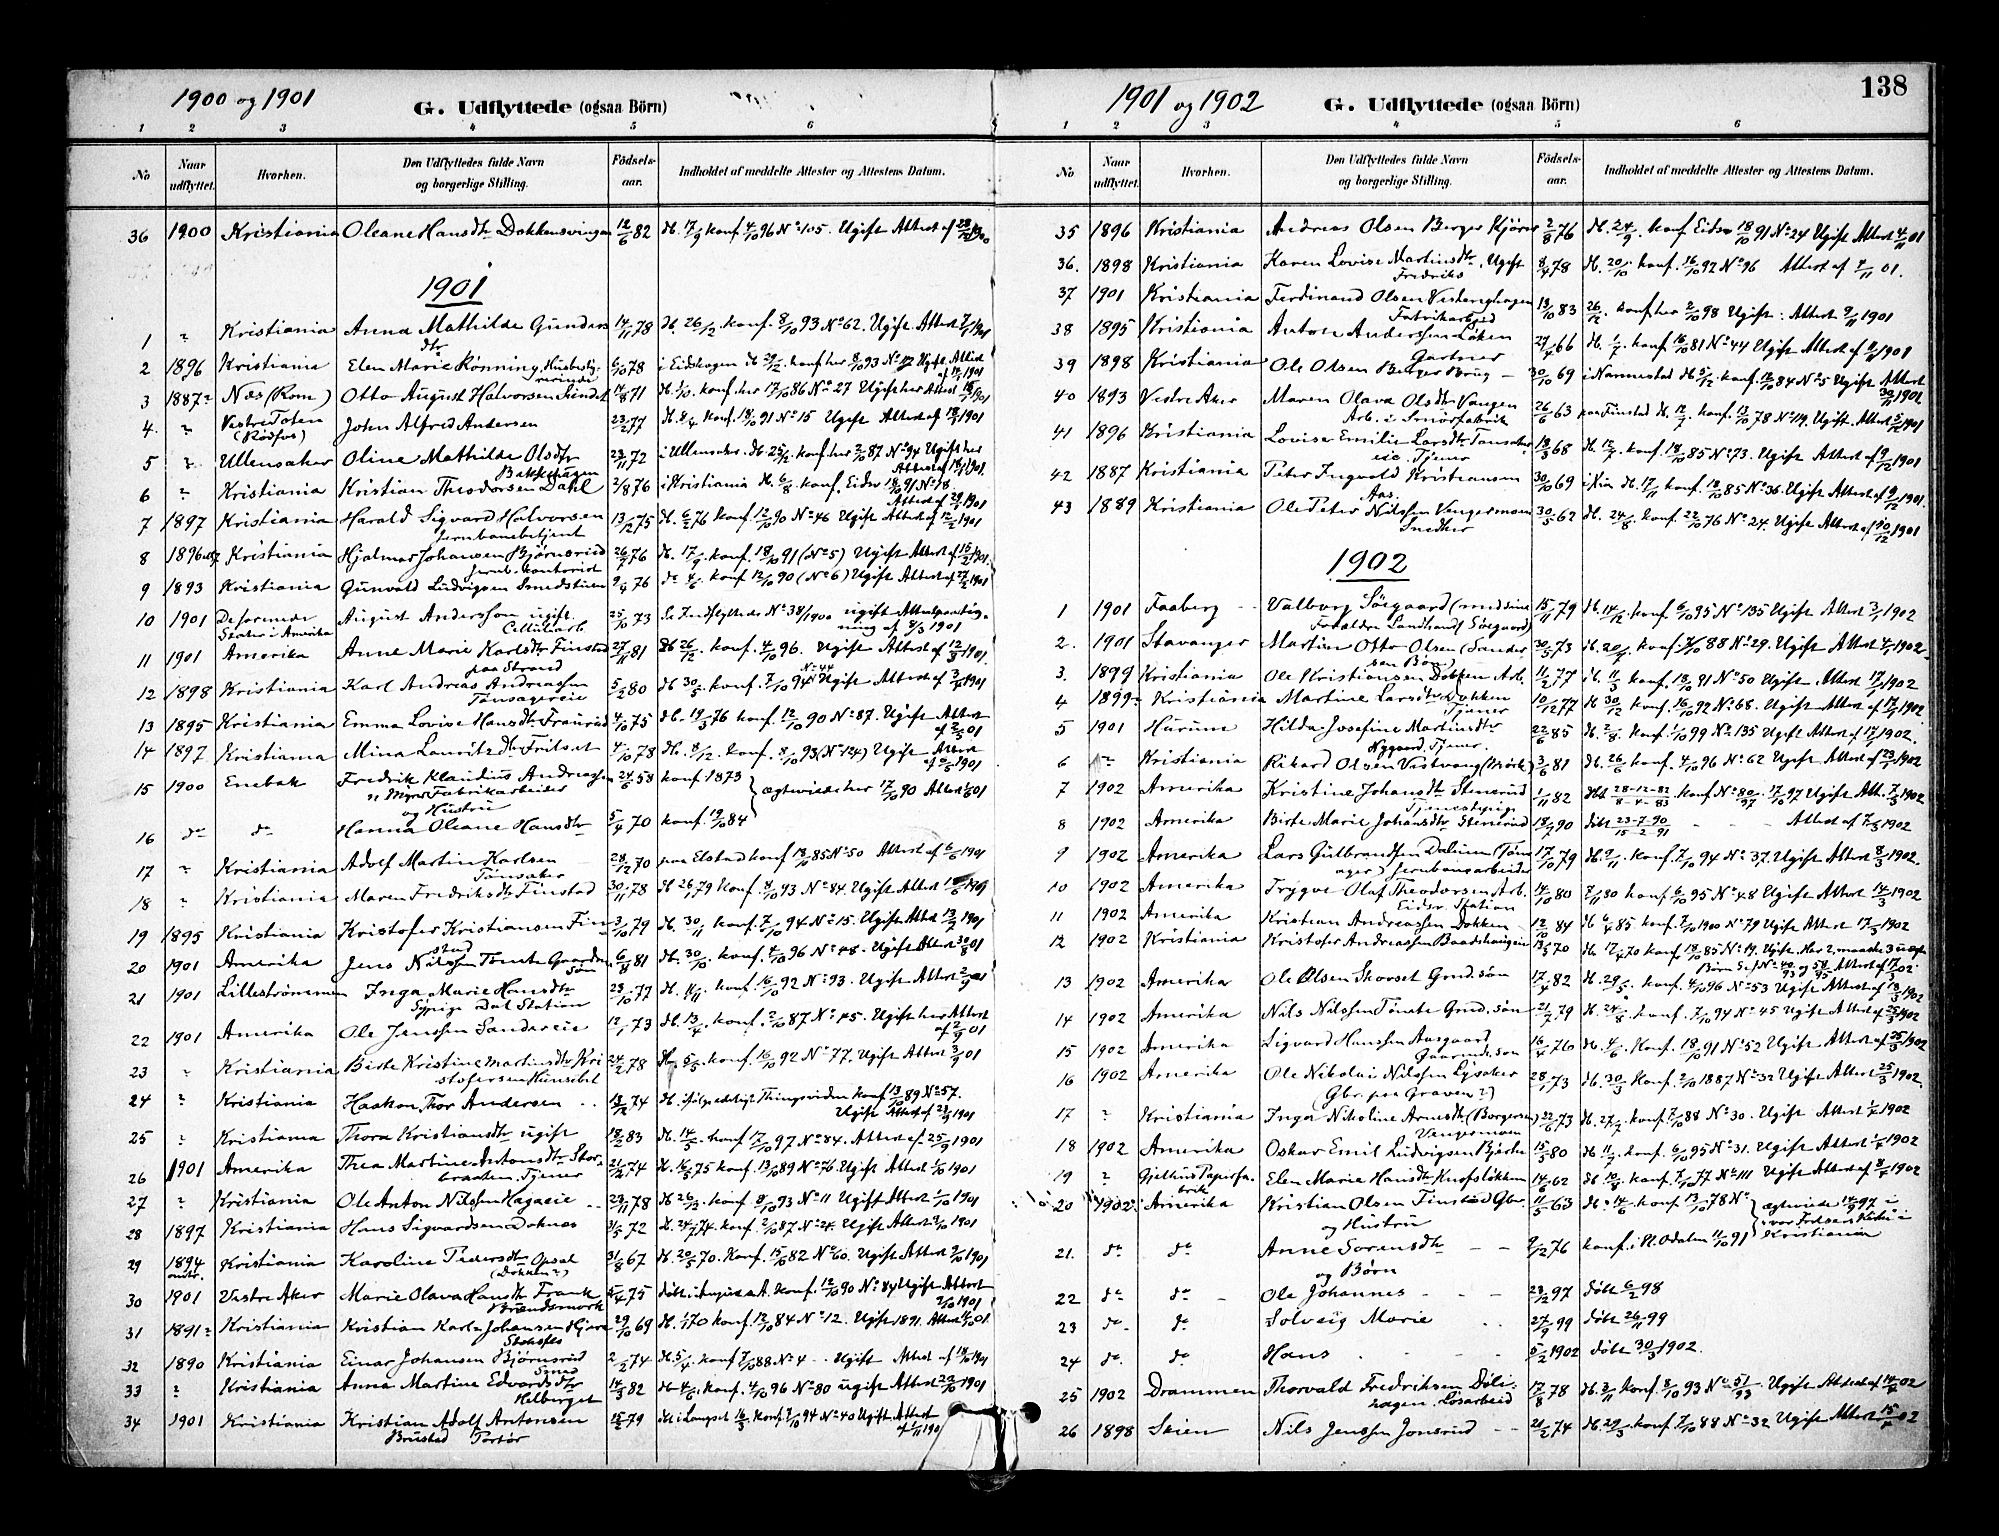 1900 og 1901
G. Udflyttede (ogsaa Börn)
1 2 3 4 5 6
No
Naar udflyttet.
Hvorhen.
Den Udflyttedes fulde Navn og borgerlige Stilling.
Födsels-aar.
Indholdet af meddelte Attester og Attestens Datum.
36 1900 Kristiania Oleane Hansdtr Dokkensvingen 12/6 82 db. 17/9 konf. 4/10 96 No 105. Ugift Attest af
1901
1 " Kristiania Anna Mathilde Gunders 14/11 78 db. 26/12 konf. 8/10 93 No 62. Ugift Attest 1901
dtr
2 1896 Kristiania Elen Marie Rønning, 6/10 78 i Eidskogen db 29/12 konf her 8/10 93 Ugift Attest
3 1887 Næs (Rom) Otto August Halvorsen 14/8 71 db. 1/10. konf. her 17/10 86 No 27 Ugift her Attest 1901
4. " Vestre Toten John Alfred Andersen 23/2 77 db. 8/4 konf. 18/10 91 No 15 Ugift Attest af 1901
(Rødfos)
5 " Ullensaker Oline Mathilde Olsdtr 23/11 72 i Ullensaker. db. 25/12. konf. her 2/10 87 No 94 Ugift her
Bakkehaugen Attest af 1901.
6 " Kristiania Kristian Theodorsen Dahl 2/8 76 i Kristiania db. 6/8 konf. Eidsv 18/10 91 No 78.
Attest af 1901
7 1897 Kristiania Harald Sigvard Halvorsen 13/12 75 db. 6/2 76 konf 12/10 90 No 46 Ugift Attest af 1901
Jernbanebetjent
8 1896 Kristiania Hjalmar Johansen Bjørnsrud 26/7 76 db. 17/9. konf. 18/10 91 (No 5) Ugift Attest af 15/2 1901.
Jernb. kontorist
9 1893 Kristiania Gunvald Ludvigsen Smedstuen 9/4 76 do 4/6. konf 12/10 90 (No 6) Ugift Attest af 27/2 1901
10 1901 De forenede August Andersson ugift 25/10 73 Se Indflyttede No 38/1900 ugift
Stater i Amerika Cellulosearb. af 8/3 1901
11 1901 Amerika Anne Marie Karlsdtr Finstad 27/11 81 db 26/12. konf. 4/10 96. Ugift Attest af 12/3 1901.
paa Strand No 44
12 1898 Kristiania Karl Andreas Andreassen 5/2 80 db 30/5. konf. 7/10 94 Ugift Attest af 1901
Tønsagereie
13 1895 Kristiania Emma Lovise Hansdtr 4/10 75 db. 19/3 76 konf 12/10 90 No 87. Ugift Attest
af 01
14 1897 Kristiania Mina Lauritzdtr Fritsat 4/10 78 db. 8/12. konf. 8/10 93 (No 124) Ugift Attest
1901
15 1900 Enebak Fredrik Klaudius Andreassen 24/6 53 konf 1873
Fabrikarbeider ægteviede her 17/10 90 Attest 01
og Hustru
16 do do Hanna Oleane Hansdtr 5/4 70 konf. 19/10 84
17 " Kristiania Adolf Martin Karlsen 28/12 70 paa Elstad konf 18/10 85 No 50 Attest af 6/6 1901
Tønsaker
18 " Kristiania Maren Fredriksdtr Finstad 30/11 78 db 26 79 konf. 8/10 93 No 84. Ugift Attest 1901
19 1895 Kristiania Kristofer Kristiansen Fin- 3/10 79 db. 30/11 konf. 7/10 94 No 15. Ugift Attest 13/7 1901
stad
20 1901 Amerika Jens Nilssen Tømte Gaardm. 6/8 81 db. 30/10. konf. 4/10 96 No 48. Ugift Attest 01
søn
21 1901 Lillestrømmen Inga Marie Hansdtr 23/10 77 konf. 16/10 92 No 93. Ugift Attest 01
Sypige Dal Station
22 1901 Amerika Ole Jenssen Sandereie 12/1 73 db. 13/4. konf. 2/10 87 No 45. Ugift her Attest
af 2/9 01
23 " Kristiania Birte Kristine Martinsdtr Kri- 24/2 78 5/5. konf. 16/10 92 No 77. Ugift Attest 3/9 01
stofersen
24 " Kristiania Haakon Thor Andersen 13/2 74 konf 13/10 89 No 57.
Ugift Attest af 1901
25 " Kristiania Thora Kristiansdtr ugift 18/2 83 db. 14/5. konf 17/10 97 No 84. Attest af 25/9 1901
26 1901 Amerika Thea Martine Antonsdtr Stor- 21/2 74 75 konf. 13/10 89 No 76. Ugift Attest 1901
Tjener
27 " Kristiania Ole Anton Nilssen Hagaeie 29/11 78 db 26/12. konf. 8/10 93 No 11 Ugift Attest 1/10 1901
28 1897 Kristiania Hans Sigvardsen Doknes 31/5 72 74. konf. 2/10 87 No 24. Ugift Attest 1901
29 1894 Kristiania Karoline Pedersdtr Opsal 31/8 67 db. 20/5 70. Konf. 15/10 82 No 60. Ugift Attest 9/10 1901
(Dokken?)
30 1901 Vestre Aker Marie Olava Hansdtr Frank 4/4 75 konf. 12/10 90 No 84 Ugift Attest
Brændsmork 1901
31 1891 Kristiania Kristian Karl Johansen 29/10 69 70 konf. 12/10 84 No 12. Ugift 1891. Attest 01.
32 1890 Kristiania Einar Johansen Bjørnsrud 2/2 74 db. 5/4. konf 7/10 88 No 4 Ugift Attest af 1901
Smed
33 " Kristiania Anna Martine Edvardsdtr 14/3 82 db 4/6. konf. 4/10 96 No 80 ugift Attest 1901
Helberget
34 1901 Kristiania Kristian Adolf Antonsen 15/2 79 konf. 7/10 94 No 40 Ugift Attest
Brustad Portør
1901 og 1902
G. Udflyttede (ogsaa Börn)
138
1 2 3 4 5 6
No
Naar udflyttet.
Hvorhen.
Den Udflyttedes fulde Navn og borgerlige Stilling.
Födsels-aar.
Indholdet af meddelte Attester og Attestens Datum.
35 1896 Kristiania Andreas Olsen Berger 2/8 76 db. 24/9. konf Eidsv 18/10 91 No 24 Ugift Attest 4/11 01
36. 1898 Kristiania Karen Lovise Martinsdtr, Ugift 8/4 78 db. 20/10 konf. 16/10 92 No 96 Attest af 7/11 01.
Fredriks
37 1901 Kristiania Ferdinand Olsen 13/10 83 26/12. konf her 2/10 98 Ugift. Attest 9/11 1901
Fabrikarbeid
38 1895 Kristiania Anton Anderssen Løken 27/4 66 db. 1/7. konf 16/10 81 No 44 Ugift Attest af 1901
Gartner
39 1898 Kristiania Ole Olsen Berger Brug 30/10 69 i Nannestad db 5/12 konf. 12/10 84 No 5 Ugift Attest
1901
40 1893 Vestre Aker Maren Olava Olsdtr Vangen 26/6 63 paa Finstad db. konf. 13/10 78 No 19. Ugift. Attest 1901
Arb. i Smørfabrik
41 1896 Kristiania Lovise Emilie Larsdtr Tønsaker 18/3 68 db. 12/7. konf. 18/10 85 No 73. Ugift Attest af 9/12 1901
eie. Tjener
42 1887 Kristiania Peter Ingvald Kristiansen 30/10 69 i Kria db. 17/11 konf. 18/10 85 No 36. Ugift Attest af 9/12 1901.
Aas.
43 1889 Kristiania Ole Peter Nilssen Vengermoen 30/5 62 db. 24/8. konf. 22/10 76 No 24. Ugift Attest af 1901
Snedker
1902
1 1901 Faaberg Valborg Søegaard (med sine 15/11 79 db. 14/12. konf. 6/10 95 No 135 Ugift Attest 3/1 1902
Forældre Landhand. Søegaard)
2. 1901 Stavanger Martin Otto Olsen (Sander 30/5 73 db. 20/7 konf. 7/10 88 No 29. Ugift Attest af 4/1 1902.
3. 1899 Kristiania Ole Kristiansen Dokken Arb. 11/2 77 konf. 18/10 91 No 50 Ugift Attest 17/1 1902
4 1899 Kristiania Martine Larsdtr Dokken 10/12 77 db 30/12 konf. 16/10 92 No 68. Ugift Attest af 17/1 1902
Tjener
5 1901 Hurum Hilda Josefine Martinsdtr 22/6 85 db. 2/8. konf. 1/10 99 No 135 Ugift Attest af 17/1 1902.
Nygaard, Tjener.
6 " Kristiania Rikard Olsen Vestvang (Mørk) 3/6 81 db. 26/6 konf. 4/10 96 No 62 Ugift Attest af 1902
7 1902 Amerika Kristine Johansdtr Stenerud 1/11 82 28-12-82 8-4-83 konf No 80/97 17/10 97 Ugift Att. 7/3 1902
Tjenestepige
8 1902 Amerika Birte Marie Johansdtr Stenerud 18/7 90 döbt 23-7-90 15-2-91 Attest af 7/3 1902
9 1902 Amerika Lars Gulbrandsen Dalum (Tøns- 17/10 79 db. 9/11. konf. 7/10 94 No 37. Ugift Attest 8/3 1902.
ager) Jernbanearbeider
10 1902 Amerika Trygve Olaf Theodorsen Arb. 14/10 80 7/11 80 konf 6/10 95 No 48 Ugift Attest 14/3 1902
Eidsv. Station
11 1902 Amerika Kristian Andreassen Dokken 12/10 84 db 6/4 85 konf. 7/10 1900 No 79 Ugift Attest 17/3 1902
12 1902 Kristiania Kristofer Andreassen Baadshaugen 13/3 70 db 17/4 70 konf 18/10 85 No 19. Ugift.
Børn Attest af 17/3 02.
13 1902 Amerika Ole Olsen Skovset Grnd. søn 17/4 82 db. 29/5. konf. 4/10 96 No 53 Ugift Attest af 18/3 1902
14 1902 Amerika Nils Nilssen Tømte Grnd. søn 21/7 79 db. 24/8 konf. 7/10 94 No 45 Ugift Attest af 25/3 1902
15 1902 Amerika Sigvard Hanssen Aasgaard 16/4 76 db. 4/6. Konf. 18/10 91 No 52 Ugift Attest af 25/3 1902
søn
16 1902 Amerika Ole Nikolai Nilssen Lysaker 28/1 73 db. 30/3 Konf. 2/10 1887 No 32 Ugift Attest 25/3 1902.
Gbr. paa Graven?)
17 " Kristiania Inga Nikoline Arnesdtr (Borgersen) 22/6 73 db. 27/7. konf. 7/10 88 No 30. Ugift Attest 1902
Vengermoen
18 1902 Amerika Oskar Emil Ludvigsen 15/5 80 db 11/7. konf. 6/10 95 No 31. Ugift Attest 1902
19 " Gjellum Papirfa- Elen Marie Hansdtr 14/6 62 db 10/8 konf. 7/10 77 No 111 Ugift Attest af 1902
brik
20 1902 Amerika Kristian Olsen Finstad Gbr. 11/5 63 db. 14/6. konf. 13/10 78 No ægteviede 97 i
og Hustru vor Frelsers Kirke i
21. do do Anne Sorensdtr 9/12 76 konf. i N. Odalen 11/10 91 Kristiania
og Børn
22 do do Ole Johannes 23/12 97 döbt 6/2 98
23 do do Solveig Marie 27/9 99 döbt 26/11 99
24 do do Hans 5/2 1902 döbt 30/3 1902.
25 1902 Drammen Thorvald Fredriksen Døli- 17/8 78 db. 3/11 konf. 8/10 93 No 51/93 Ugift Attest af 02
hagen. Løsarbeid
26 1898 Skien Nils Jenssen Jonsrud 21/2 74 db. 29/3 konf. 7/10 88 No 32 Ugift Attest 02